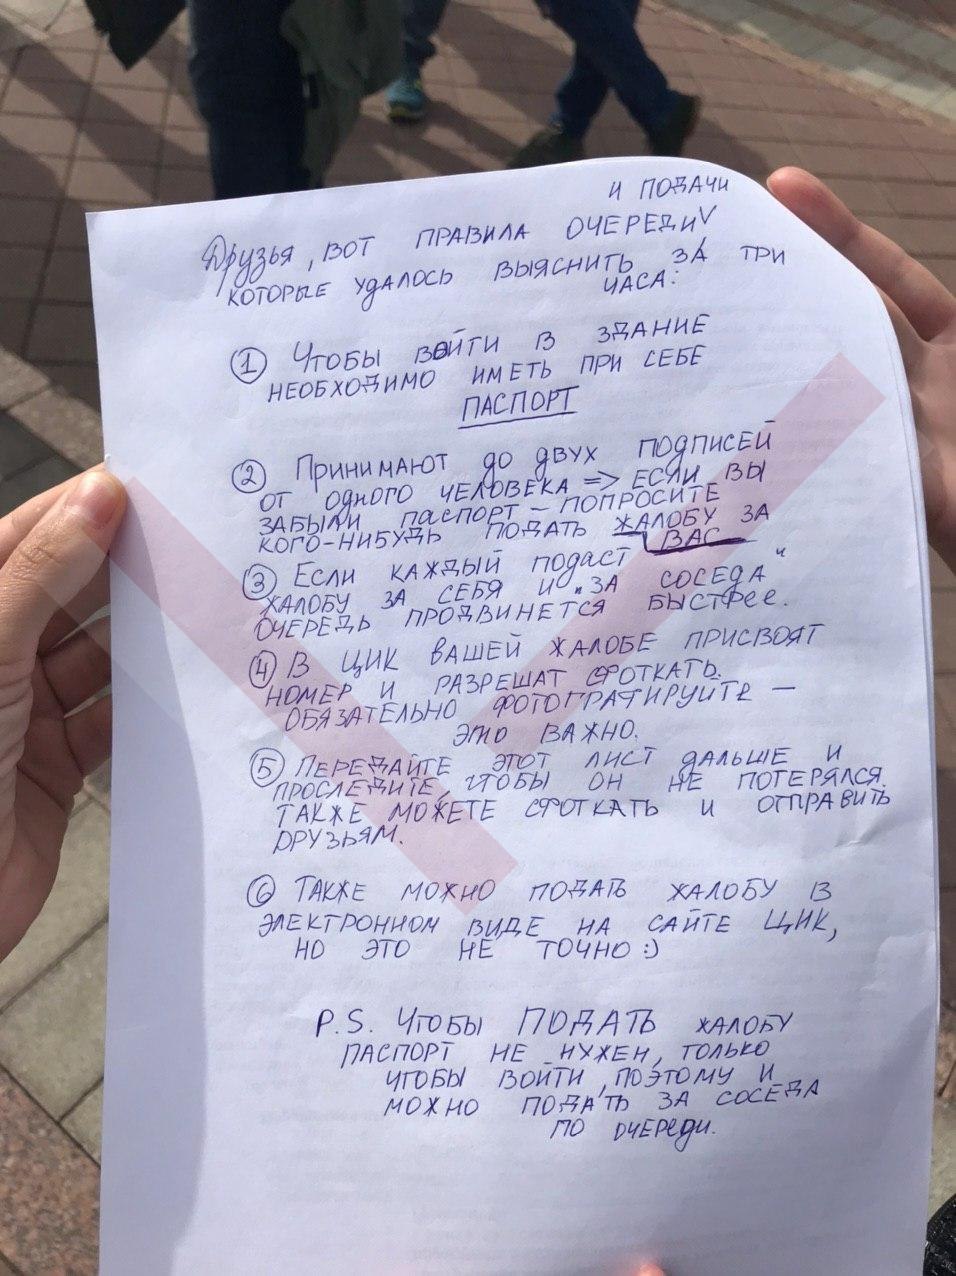 и подачи
Друзья, вот правила очереди V
которые удалось выяснить за три
часа:
① Чтобы войти в здание
необходимо иметь при себе
ПАСПОРТ
② Принимают до двух подписей
от одного человека => если вы
забыли паспорт – попросите
кого-нибудь подать жалобу за
вас
③ Если каждый подаст
жалобу за себя и „за соседа“
очередь продвинется быстрее.
④ В ЦИК вашей жалобе присвоят
номер и разрешат сфоткать.
Обязательно фотографируйте –
это важно.
⑤ Передайте этот лист дальше и
проследите чтобы он не потерялся.
Также можете сфоткать и отправить
друзьям.
⑥ Также можно подать жалобу в
электронном виде на сайте ЦИК,
но это не точно :)
P.S. Чтобы ПОДАТЬ жалобу
паспорт не нужен, только
чтобы войти, поэтому и
можно подать за соседа
по очереди.